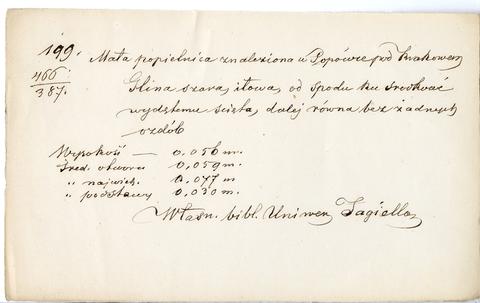 199.
Mała popielnica znaleziona w Popówce pod Krakowem
466
387.
Glina szara, iłowa, od spodu ku środkowi
wydętemu ścięta, dalej równa bez żadnych
ozdób
Wysokość — 0,056 m.
Śred. otworu 0,059 m.
" najwięk. 0,077 m
" podstawy 0,030 m.
Własn. bibl. Uniwer. Jagiell.